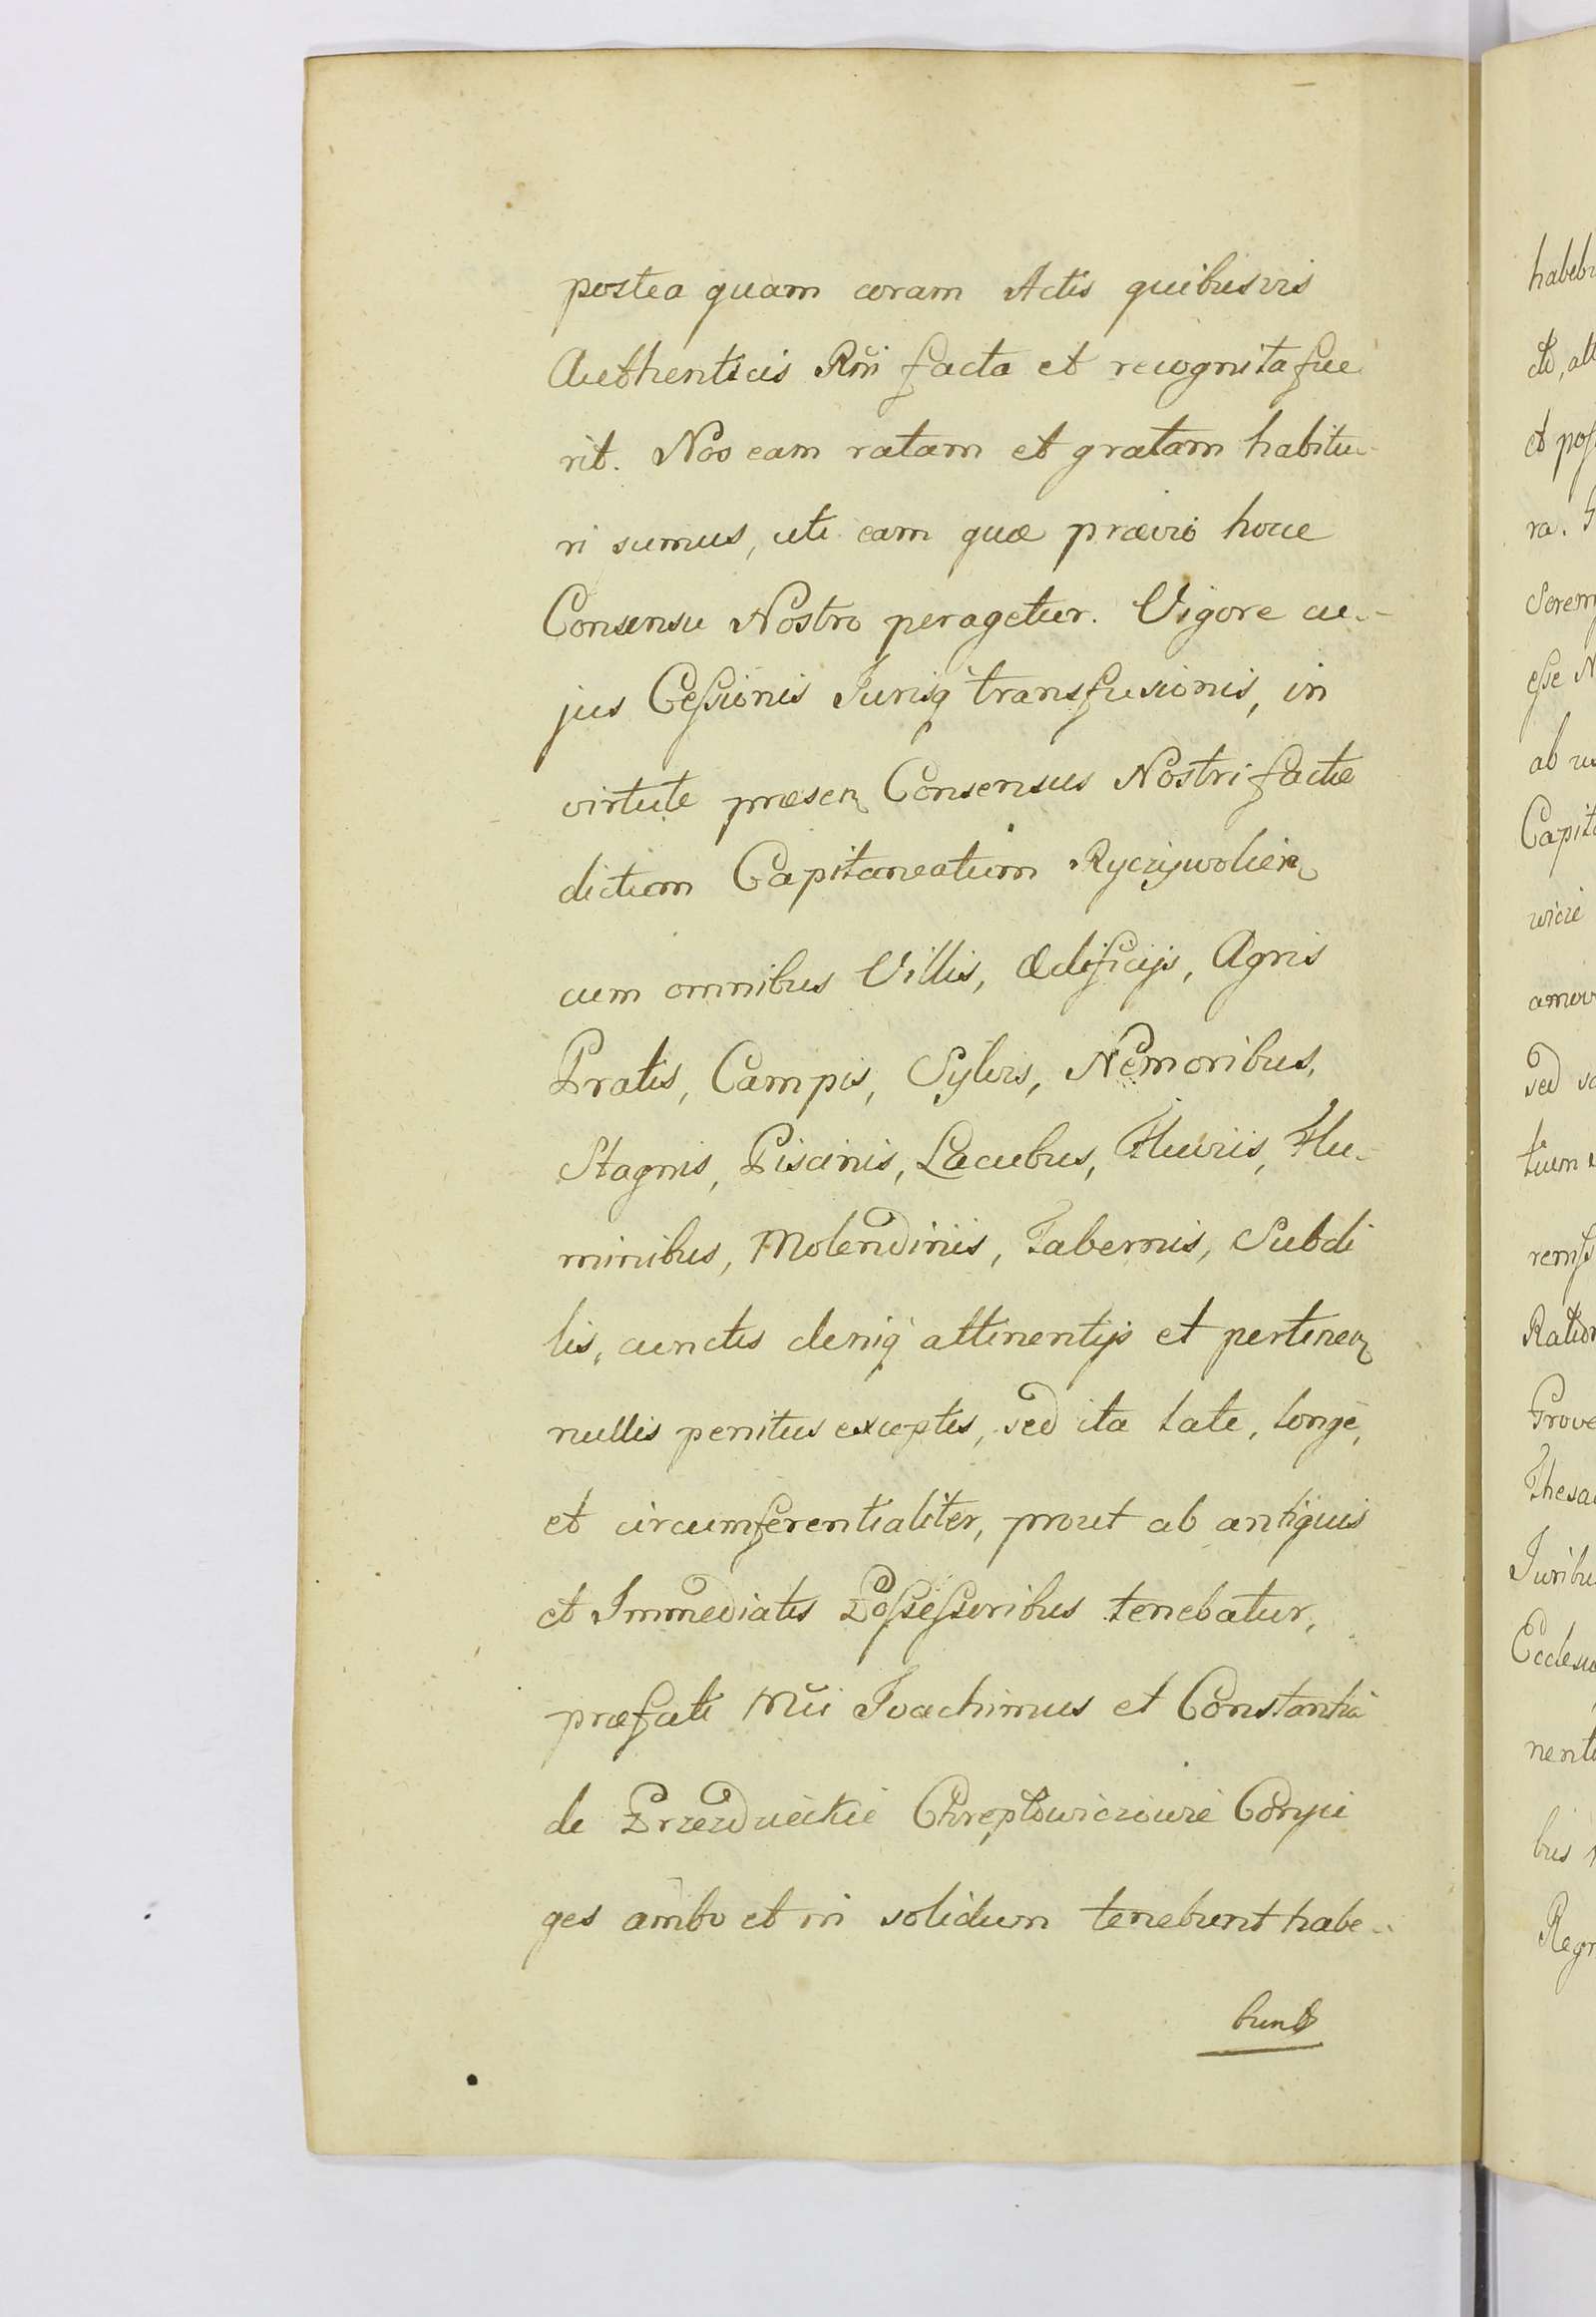 postea quam coram Actis quibusvis
Authenticis Rñi facta et recognita fue
rit. Nos eam ratam et gratam habitu-
ri sumus, uti eam quæ prævio hocce
Consensu Nostro peragetur. Vigore cu-
jus Cessionis Jurisq transfusionis, in
virtute præsen Consensus Nostri factæ
dictum Capitaneatum Ryczywolien
cum omnibus Villis, Ædificijs, Agris
Pratis, Campis, Sylvis, Nemoribus,
Stagnis, Piscinis, Lacubus, Fluviis, Flu-
minibus, Molendinis, Tabernis, Subdi
tis, cunctis deniq attinentijs et pertinen
nullis penitus exceptis, sed ita late, longè,
et circumferentialiter, prout ab antiquis
et Immediatis Possessoribus tenebatur,
præfati Mci Joachimus et Constantia
de Chreptowiczowie Conju
ges ambo et in solidum tenebunt habe-
bunt
habeb
et pos
ra.
esse N
Capit
wicze
sed
tuum
Ration
Prove
Thesa
Juribu
Ecclesi
nenti
bus
Regn